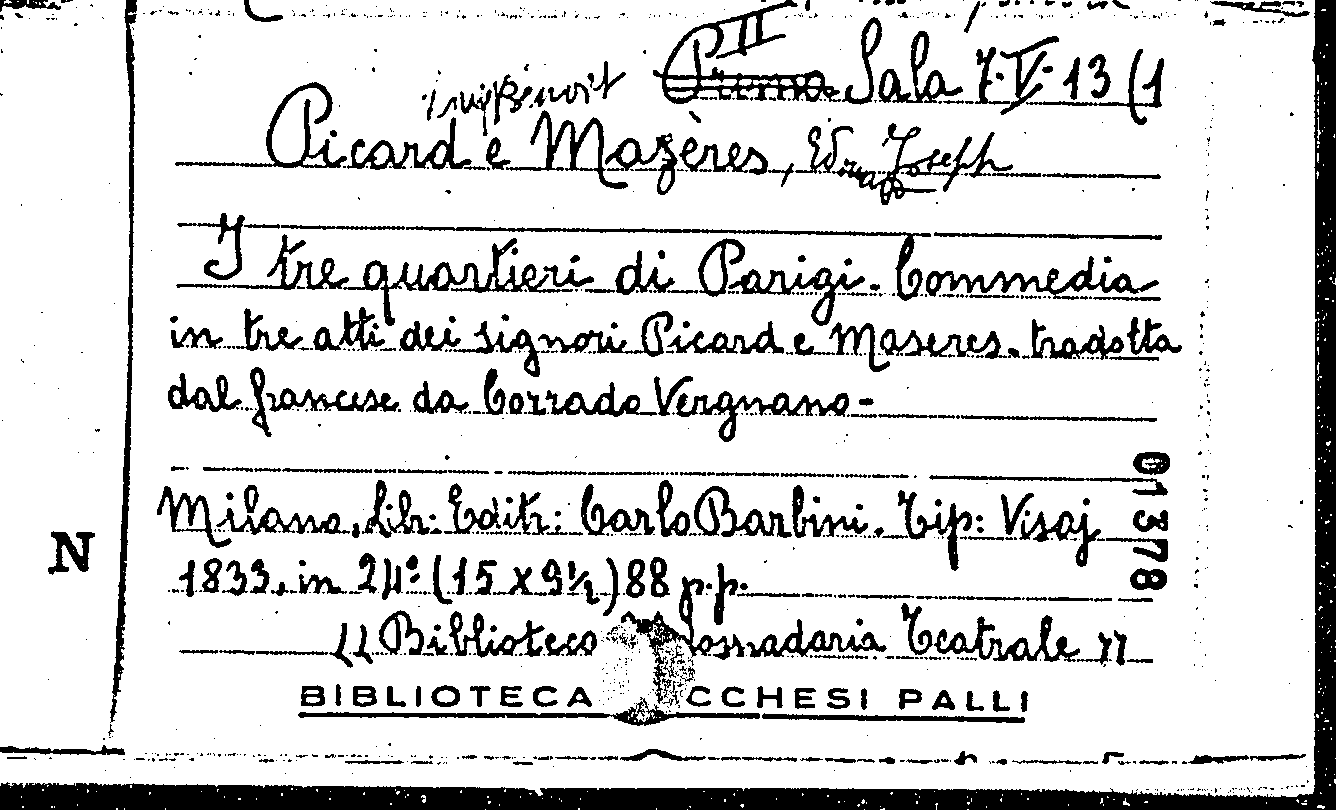 II
Prima Sala 7.V.13 (1
Picard e Mazères, Joseph
I tre quartieri di Parigi. Commedia
in tre atti dei signori Picard e Maseres. tradotta
dal francese da Corrado Vergnano -
Milano, Libr: Editr: Carlo Barbini. Tip: Visaj
1833, in 24° (15 x 9½) 88 p.p.
"Biblioteca Teatrale"
BIBLIOTECA CCHESI PALLI
N
01378